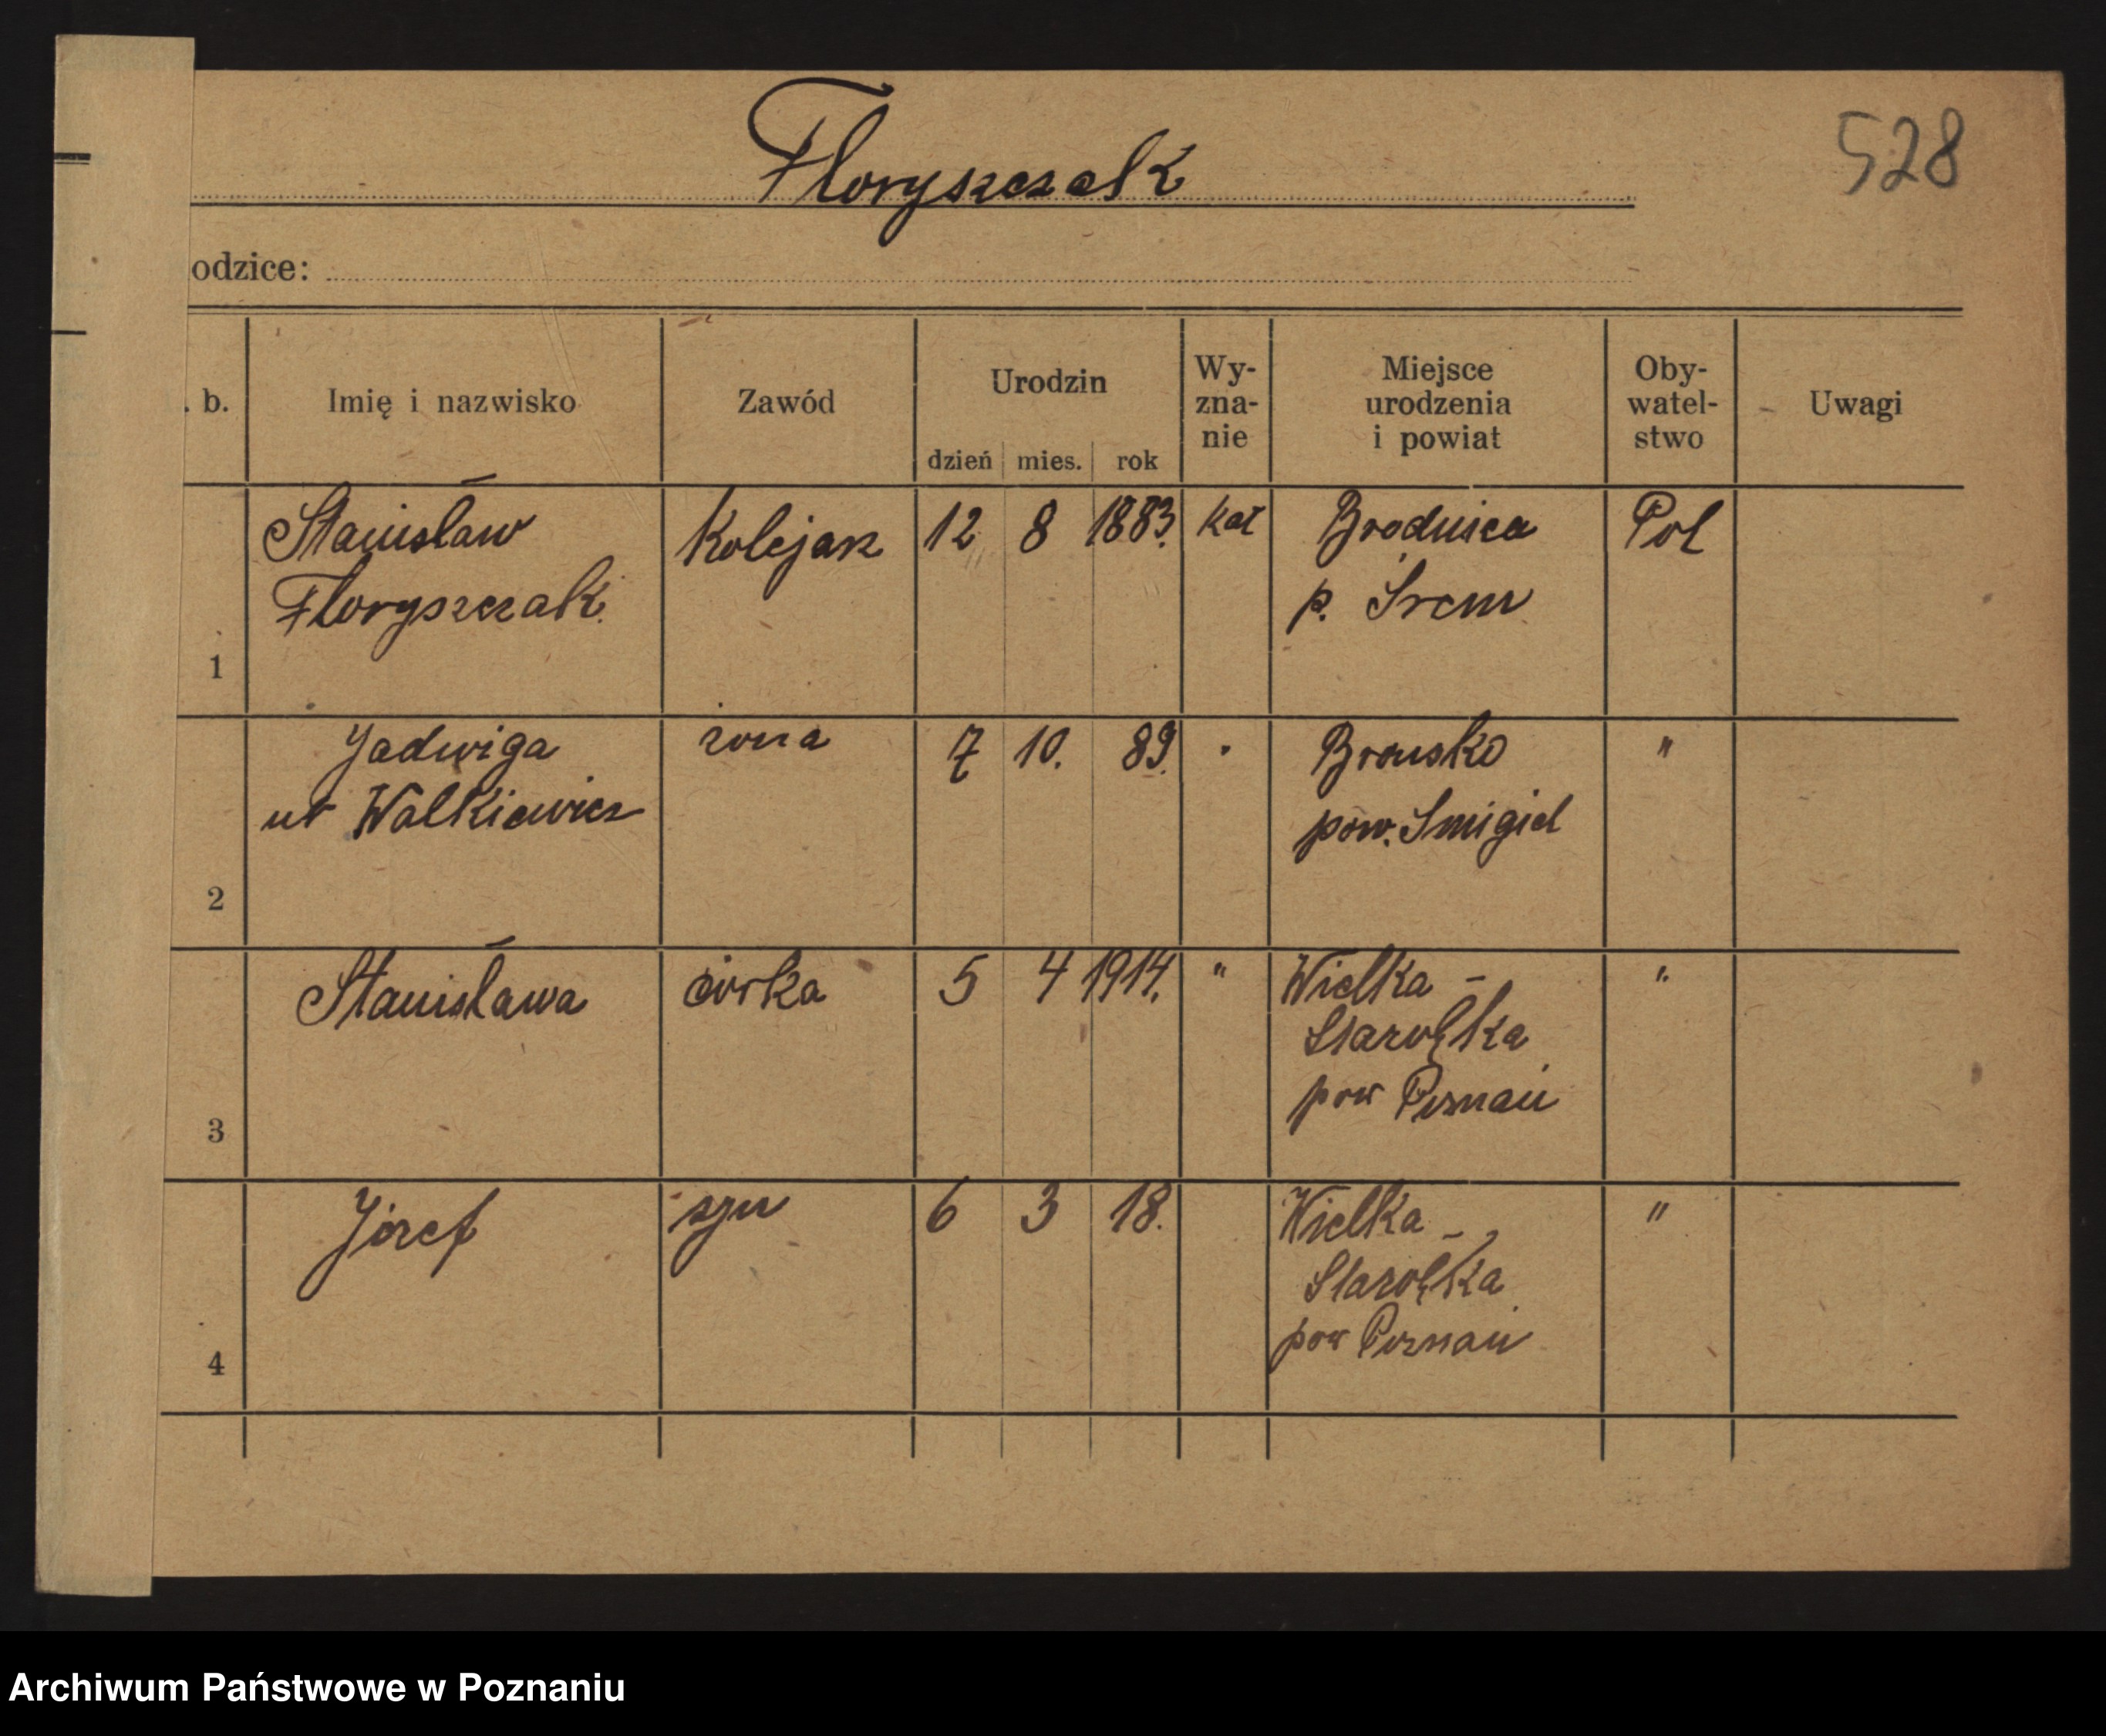 Floryszczak
528
odzice:
. b.
Imię i nazwisko
Zawód
Urodzin
dzień mies. rok
Wy-
zna-
nie
Miejsce
urodzenia
i powiat
Oby-
watel-
stwo
Uwagi
1
Stanisław
Floryszczak
Kolejarz
12 8 1883.
Kat
Brodnica
p. Śrem
Pol
2
Jadwiga
ur Walkiewicz
żona
7 10. 89.
"
Bronsko
pow. Smigiel
"
3
Stanisława
córka
5 4 1914.
"
Wielka -
Starołęka
pow Poznań
"
4
Józef
syn
6 3 18.
Wielka -
Starołęka
pow Poznań
"
Archiwum Państwowe w Poznaniu